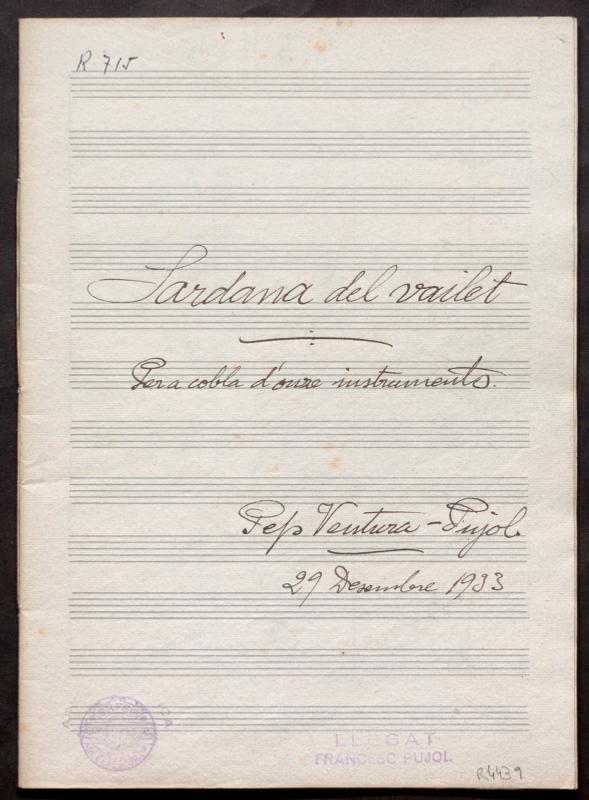 R. 715
Sardana del vailet
Per a cobla d'onze instruments.
Pep Ventura - Pujol.
29 Desembre 1933
LLEGAT
FRANCESC PUJOL
R4439